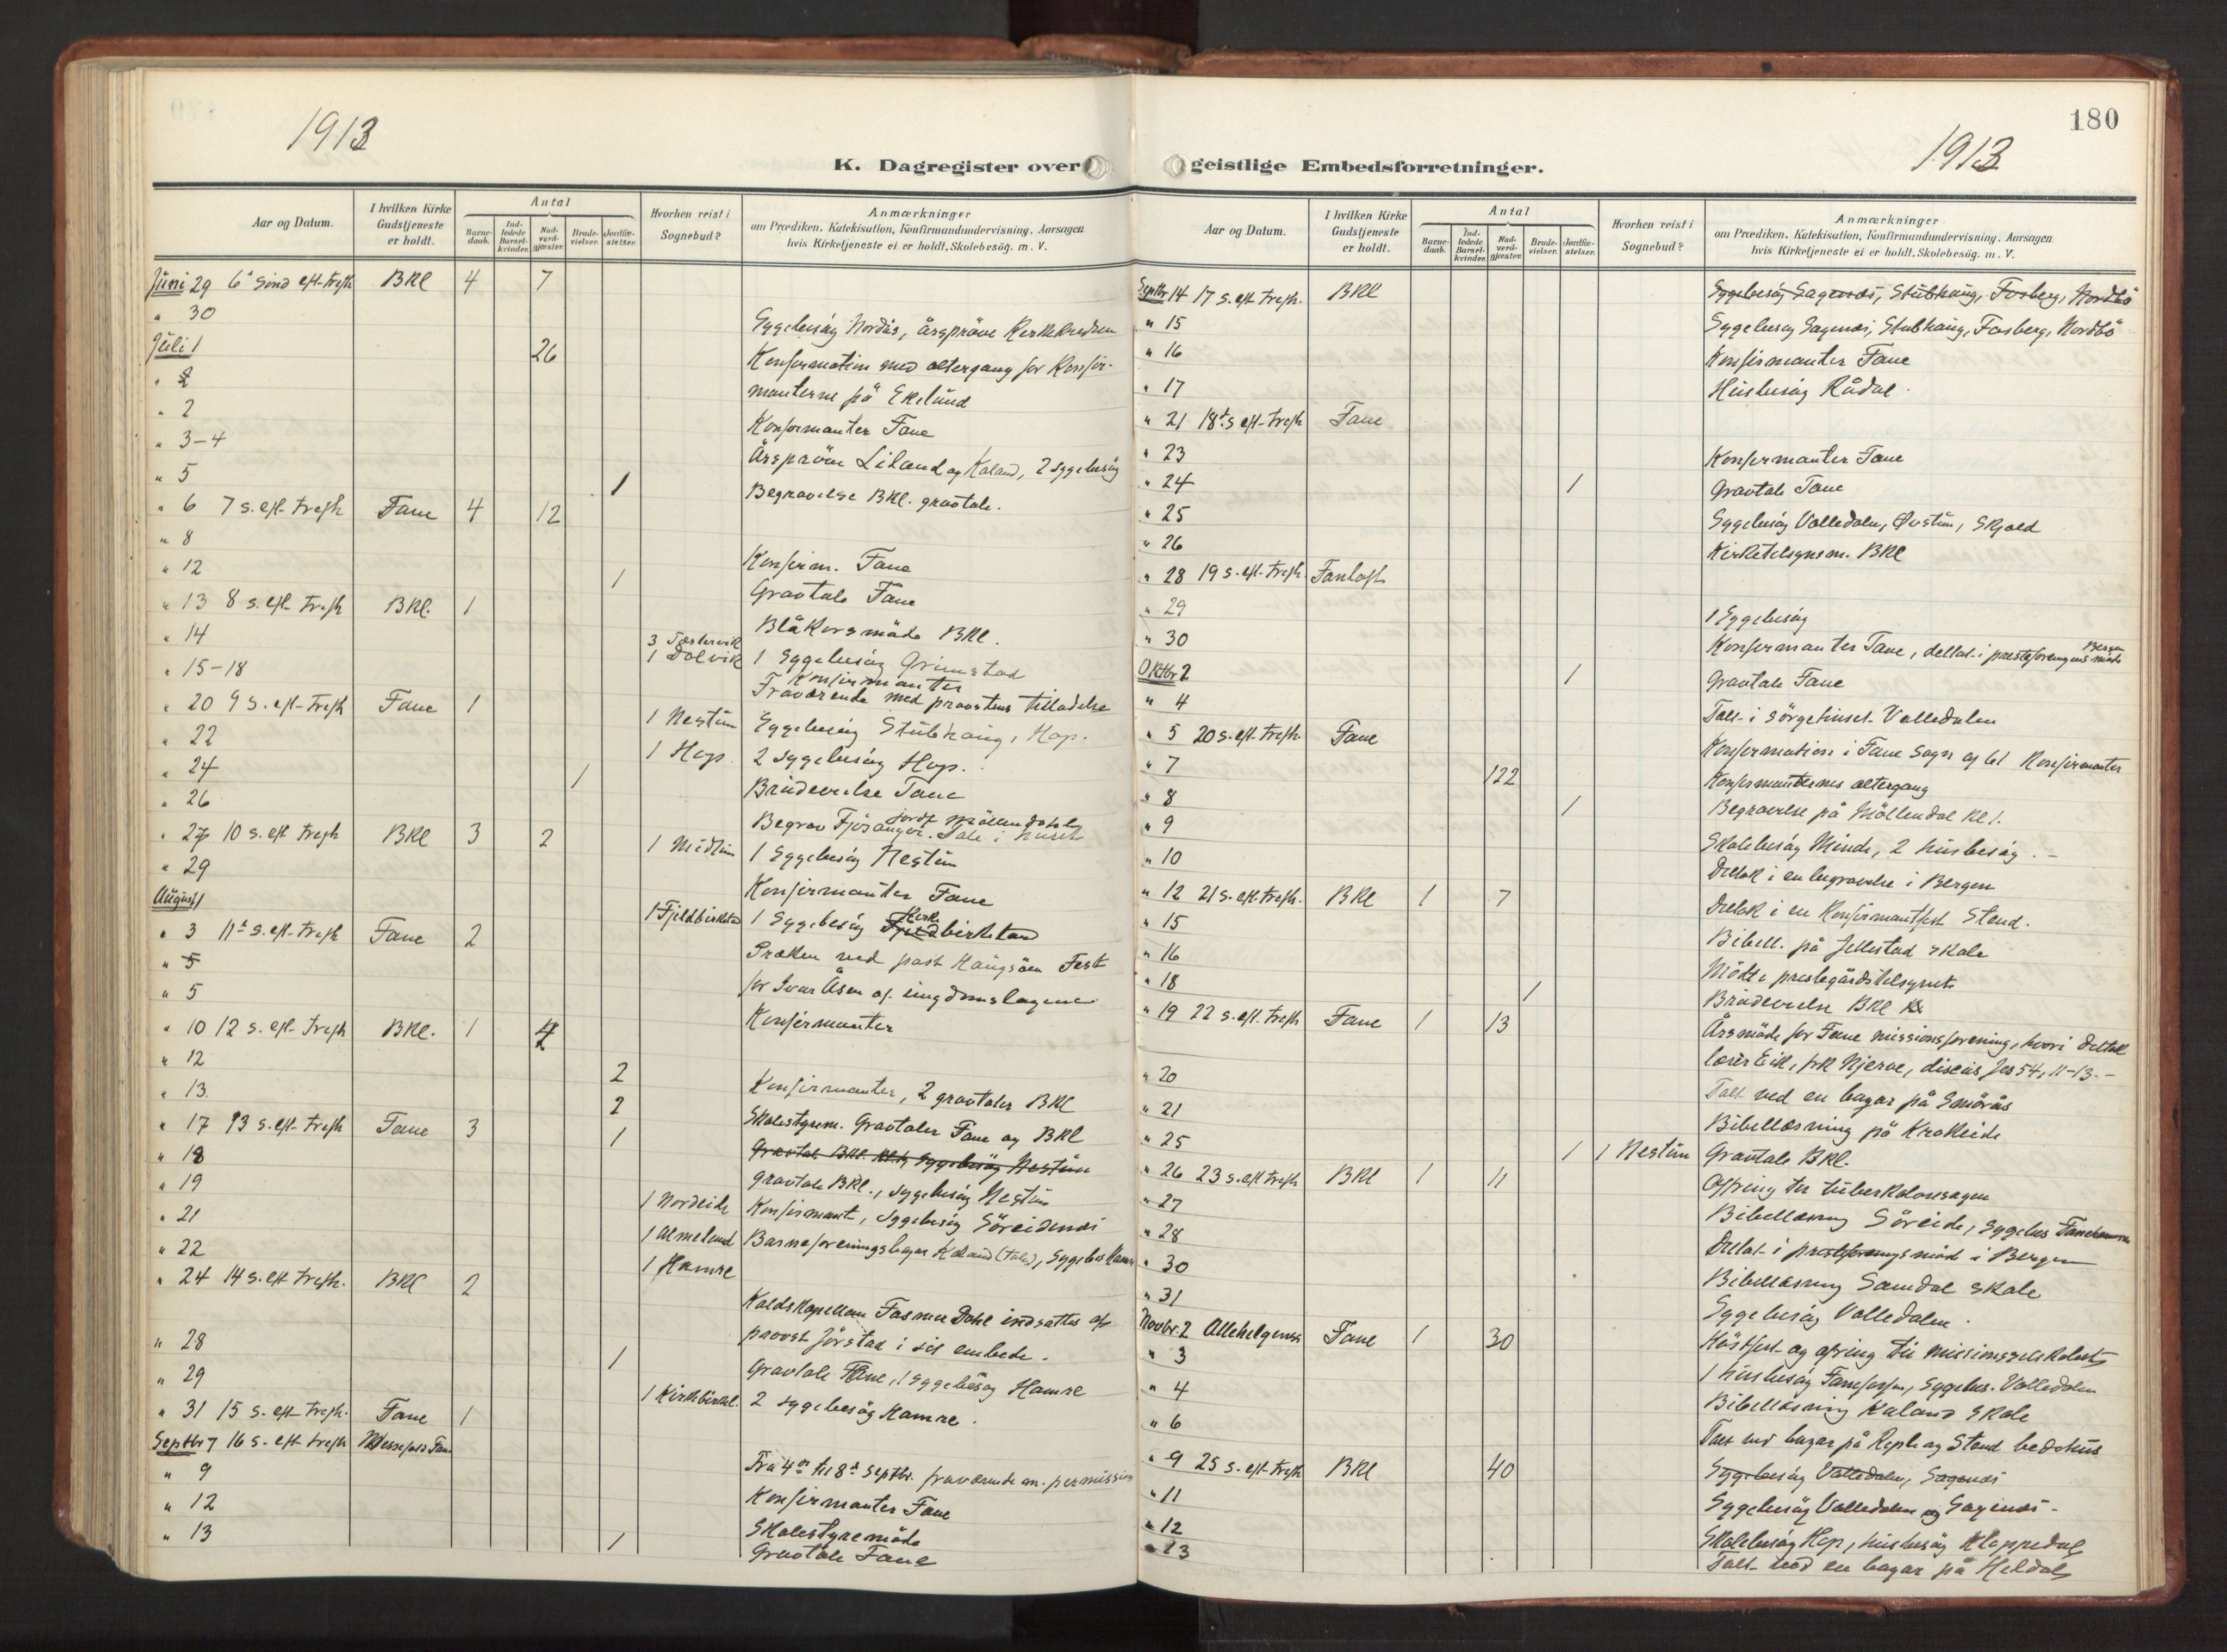 1913
K. Dagregister over
Aar og Datum.
I hvilken Kirke Gudstjeneste er holdt.
Antal
Barne-daab.
Ind-ledede Barsel-kvinder.
Nad-verd-gjæster.
Brude-vielser.
Jordfæ-stelser.
Hvorhen reist i Sognebud?
Anmærkninger
om Prædiken, Katekisation, Konfirmandundervisning, Aarsagen
hvis Kirketjeneste ei er holdt, Skolebesøg. m. V.
Juni 29 6te Sønd eft. trefh BKl 4 7
" 30 Sygebesög Nordås, årspröve Kirkekredsen
Juli 1 26 Konfirmation med altergang for Konfir-
" 2 manterne på Ekelund
" 2 Konfirmanter Fane
" 3-4 Årspröve Liland og Kaland, 2 sygebesög
" 5 1 Begravelse BKl. gravtale.
" 6 7 s. eft. trefh Fane 4 12
" 8 Konfirm. Fane
" 12 1 Gravtale Fane
" 13 8 s. eft. trefh BKl. 1 Blåkorsmöde BKl.
" 14 1 Dolvik 1 Sygebesög Grimstad
" 15-18 Konfirmanter
Fraværende med provstens tilladelse
" 20 9 s. eft. trefh Fane 1
" 22 1 Nestun Sygebesög Stubhaug, Hop.
" 24 1 Hop 2 sygebesög Hop.
" 26 1 Brudevielse Fane
" 27 10 s. eft. trefh BKl 3 2 Begrav Fjösanger. Tale i huset
" 29 1 Midtun 1 Sygebesög Nestun
August 1 Konfirmanter Fane
" 3 11te s. eft. trefh Fane 2 1 Fjeldbirkeland 1 Sygebesög Kirkbirkeland
" 5 Præken ved past Haugsöen Fest
" 5 for Ivar Åsen af ungdomslagene
" 10 12 s. eft. trefh BKl. 1 4 Konfirmanter
" 12
" 13. 2 Konfirmanter, 2 gravtaler BKl
" 17 13 s. eft. trefh Fane 3 2 Skolestyrem. Gravtaler Fane og BKl
" 18 1 Gravtale BKl. Sygebesög Nestun
" 19 gravtale BKl., sygebesög Nestun
" 21 1 Nordeide Konfirmant, sygebesög Söreidenes
" 22 1 Almeland Barneforeningsbazar Kaland (tale), Sygebes Hamre
" 24 14 s. eft trefh. BKl 2 1 Hamre
Kaldskapellan Fasmer Dahl indsattes af
" 28 provst Jörstad i sit embede.
" 29 1 Gravtale Fane, 1 Sygebesög Hamre
" 31 15 s. eft trefh. Fane 1 1 Kirkebirkel. 2 sygebesög Hamre.
Septbr 7 16 s. eft trefh Messefald Fane
" 9 Fra 4de til 8de Septbr. fraværende m. permission
" 12 Konfirmanter Fane
" 13 Skolestyremöde
1 Gravtale Fane
180
1913
geistlige Embedsforretninger.
Aar og Datum.
I hvilken Kirke Gudstjeneste er holdt.
Antal
Barne-daab.
Ind-ledede Barsel-kvinder.
Nad-verd-gjæster.
Brude-vielser.
Jordfæ-stelser.
Hvorhen reist i Sognebud?
Anmærkninger
om Prædiken, Katekisation, Konfirmandundervisning, Aarsagen
hvis Kirketjeneste ei er holdt, Skolebesøg. m. V.
Septbr 14 17 s. eft trefh. BKl Sygebesög Sagenes, Stubhaug, Fosberg, Nordbö
" 15 Sygebesög Sagenes, Stubhaug, Fosberg, Nordbö
" 16 Konfirmanter Fane
" 17 Husbesög Rådal.
" 21 18de s eft. trefh Fane
" 23 Konfirmanter Fane
" 24 1 Gravtale Fane
" 25 Sygebesög Valledalen, Övstun, Skjold
" 26 Kirketilsynsm. BKl
" 28 19 s. eft. trefh. Fantoft
" 29 1 Sygebesög
" 30 Konfirmanter Fane, deltat i presteforeningens möde Bergen
Oktbr 2 1 Gravtale Fane
" 4 Talt i sörgehuset Valledalen
" 5 20 s. eft. trefh. Fane Konfirmation i Fane sogn af 61 Konfirmanter
" 7 122 Konfirmanternes altergang
" 8 1 Begravelse på Möllendal kl 1.
" 9 Skolebesög Minde, 2 husbesög. -
" 10 Deltok i en begravelse i Bergen
" 12 21 s. eft. trefh. BKl 1 7 Deltok i en Konfirmantfest Stend.
" 15 Bibell. på Jellestad skole
" 16 Mödte prestegårdstilsynet
" 18 1 Brudevielse BKl
" 19 22 s. eft. trefh Fane 1 13 Årsmöde for Fane missionsforening, hvori deltok
lærer Eik, frk Njerve, discus Jes 54, 11-13. -
" 20 Talt ved en bazar på Smörås
" 21 Bibellæsning på Krokeide
" 25 1 1 Nestun Gravtale BKl.
" 26 23 s. eft trefh BKl 1 11 Ofring til tuberkulosesagen
" 27 Bibellæsning Söreide, sygebes Fanehammeren
" 28 Deltat i presteforeningsmöde i Bergen
" 30 Bibellæsning Samdal skole
" 31 Sygebesög Valledalen.
Novbr. 2 Allehelgens Fane 1 30 Höstfest og ofring til missionsselskabet
" 3 1 husbesög Fanefossen, sygebes. Valledalen
" 4 Bibellæsning Kaland skole
" 6 Talt ved bazar på Rople og Stend bedehus
" 9 25 s. eft. trefh BKl 40 Sygebesög Valledalen, Sagenes
" 11 Sygebesög Valledalen og Sagenes -
" 12 Skolebesög Hop, husbesög Kloppedal
" 13 Talt ved en bazar på Heldal